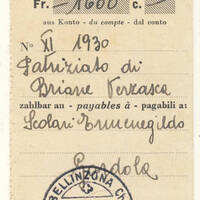 Fr. —1600— c. —
aus Konto - du compte - dal conto
No XI 1930
Patriziato di
Brione Verzasca
zahlbar an - payables à - pagabili a:
Scolari Ermenegildo
Gordola
BELLINZONA